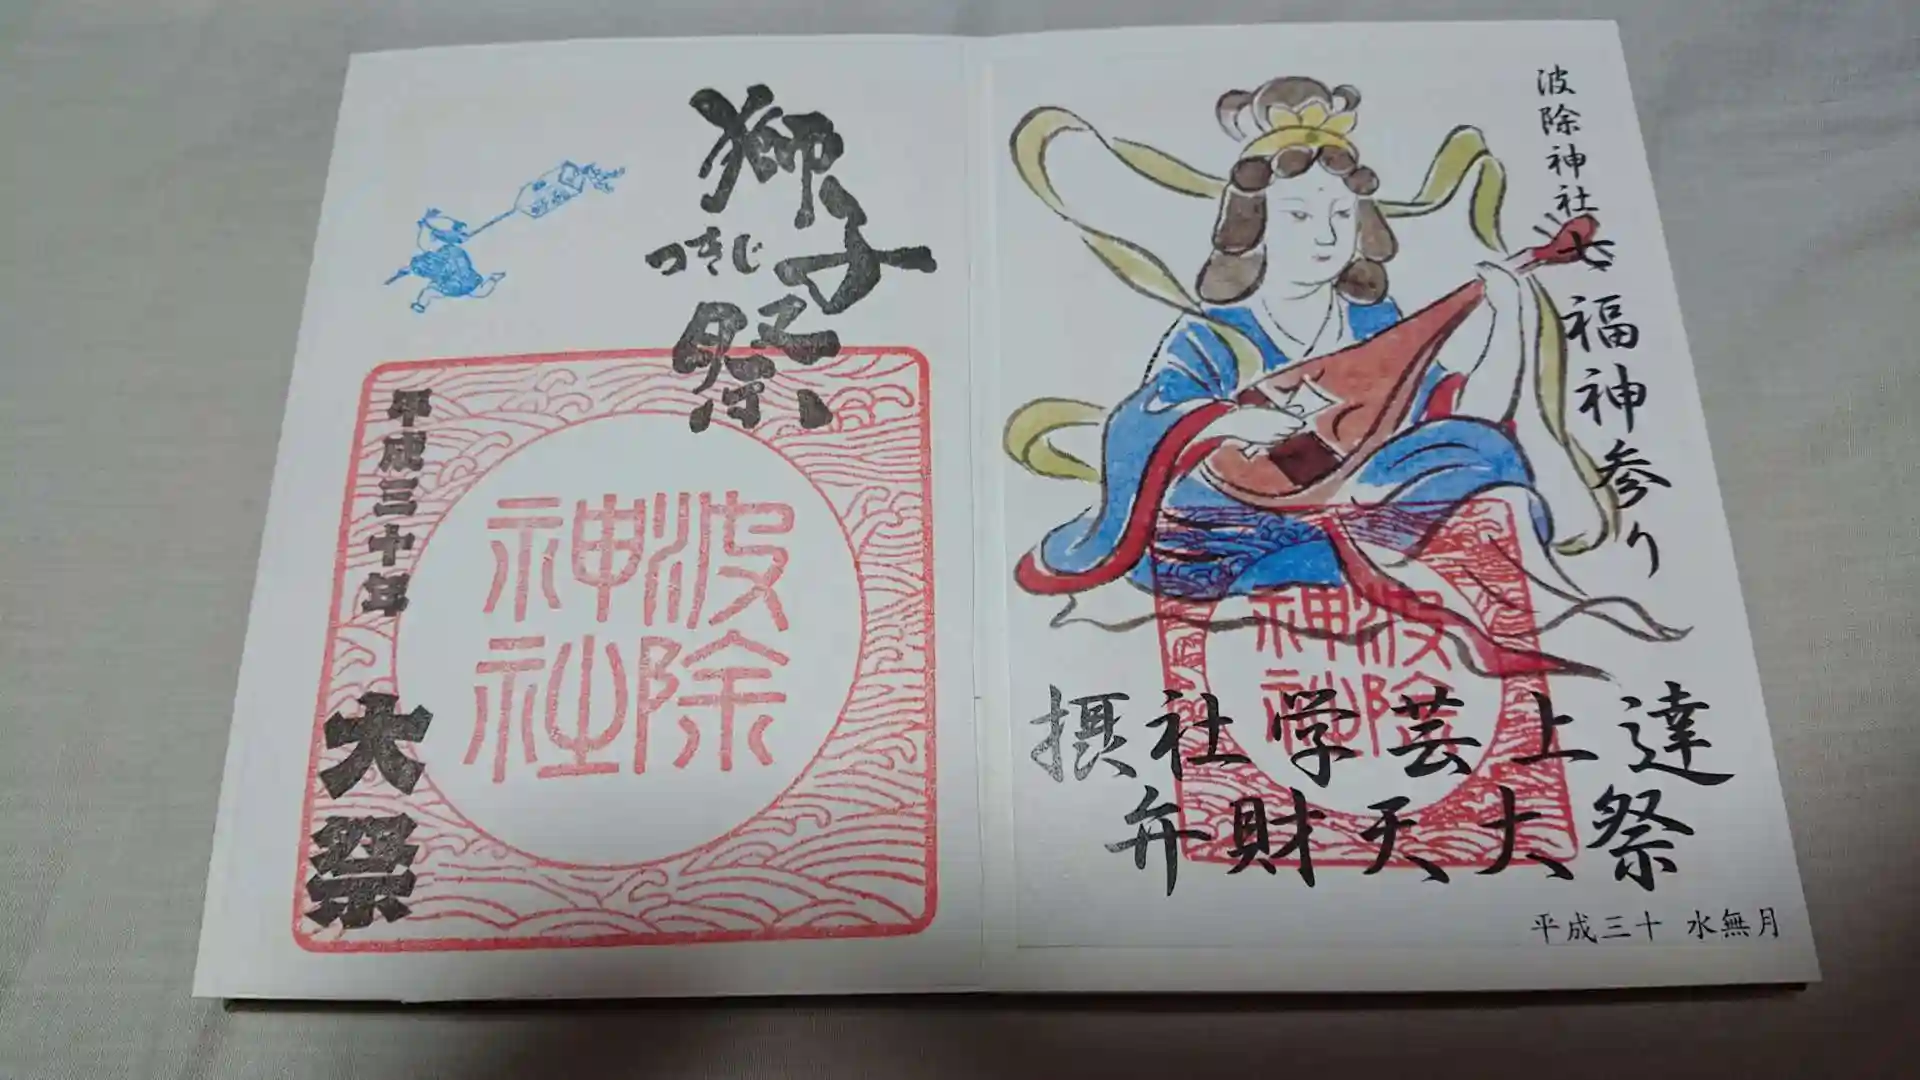 波除神社七福神参り
摂社学芸上達
弁財天大祭
平成三十 水無月
波除
神社
獅子祭
つきじ
波除
神社
平成三十年
大祭